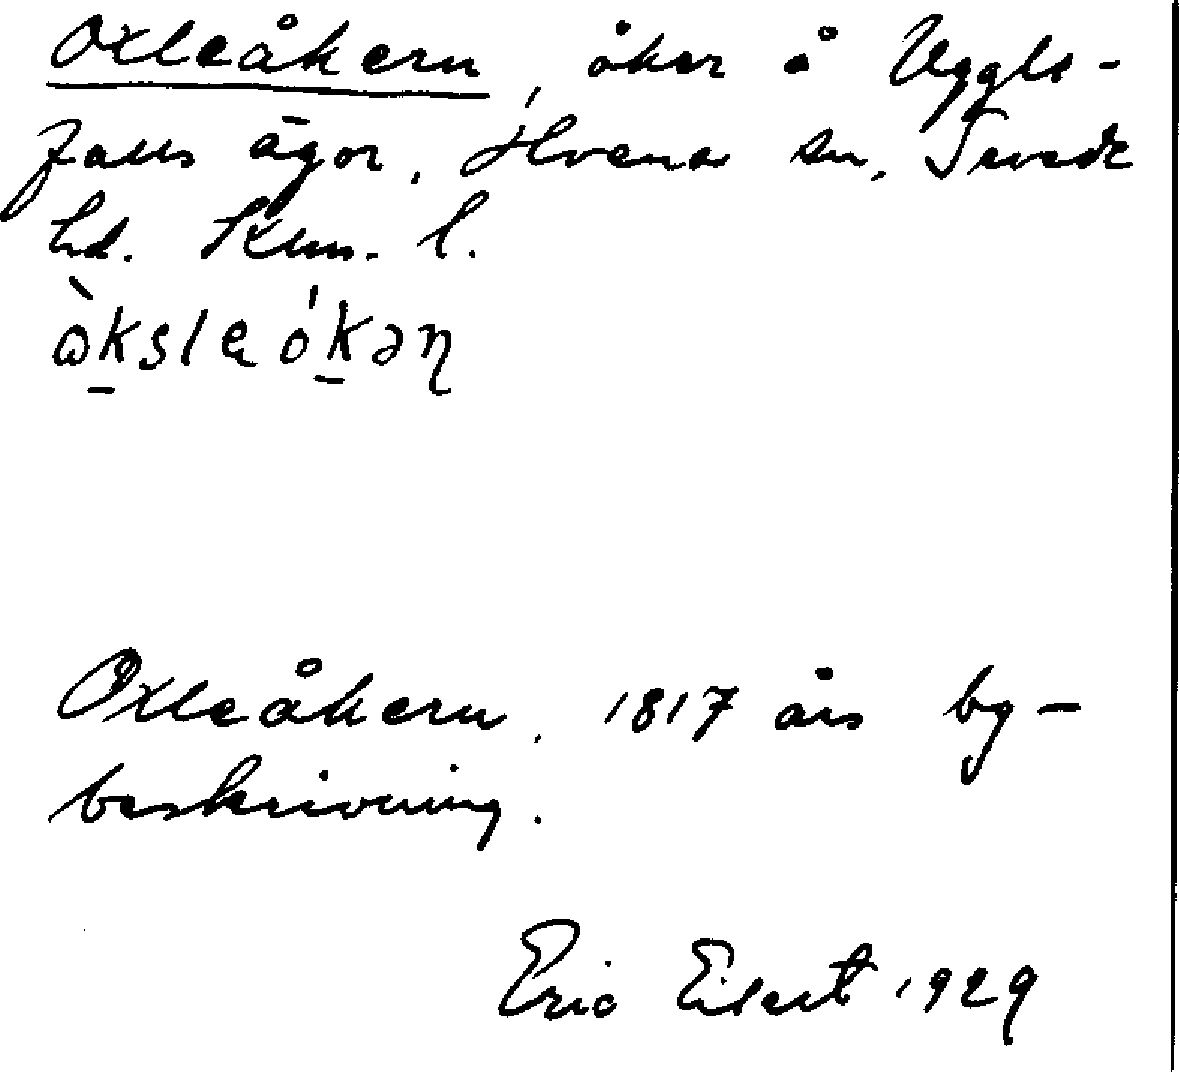 Oxleåkern, åker å Uggle-
falls ägor, Hvena sn, Sevede
hd. Klm. l.
ὼksleókəη
Oxleåkern, 1817 års by-
beskrivning.
Eric Eilert 1929